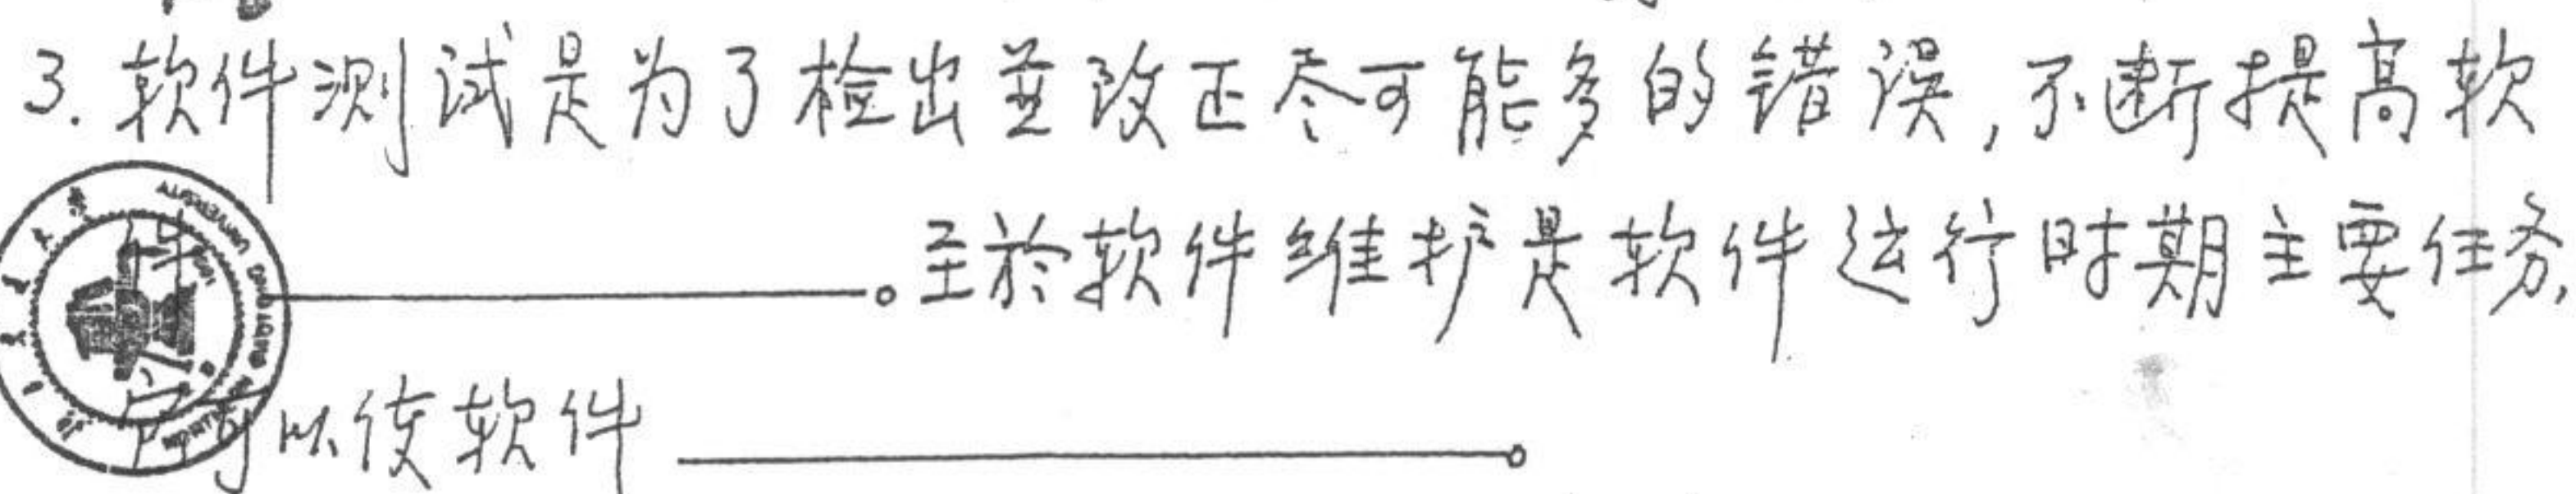 3. 软件测试是为了检出並改正尽可能多的错误,不断提高软
件______。至於软件维护是软件运行时期主要任务,
它可以使软件______。